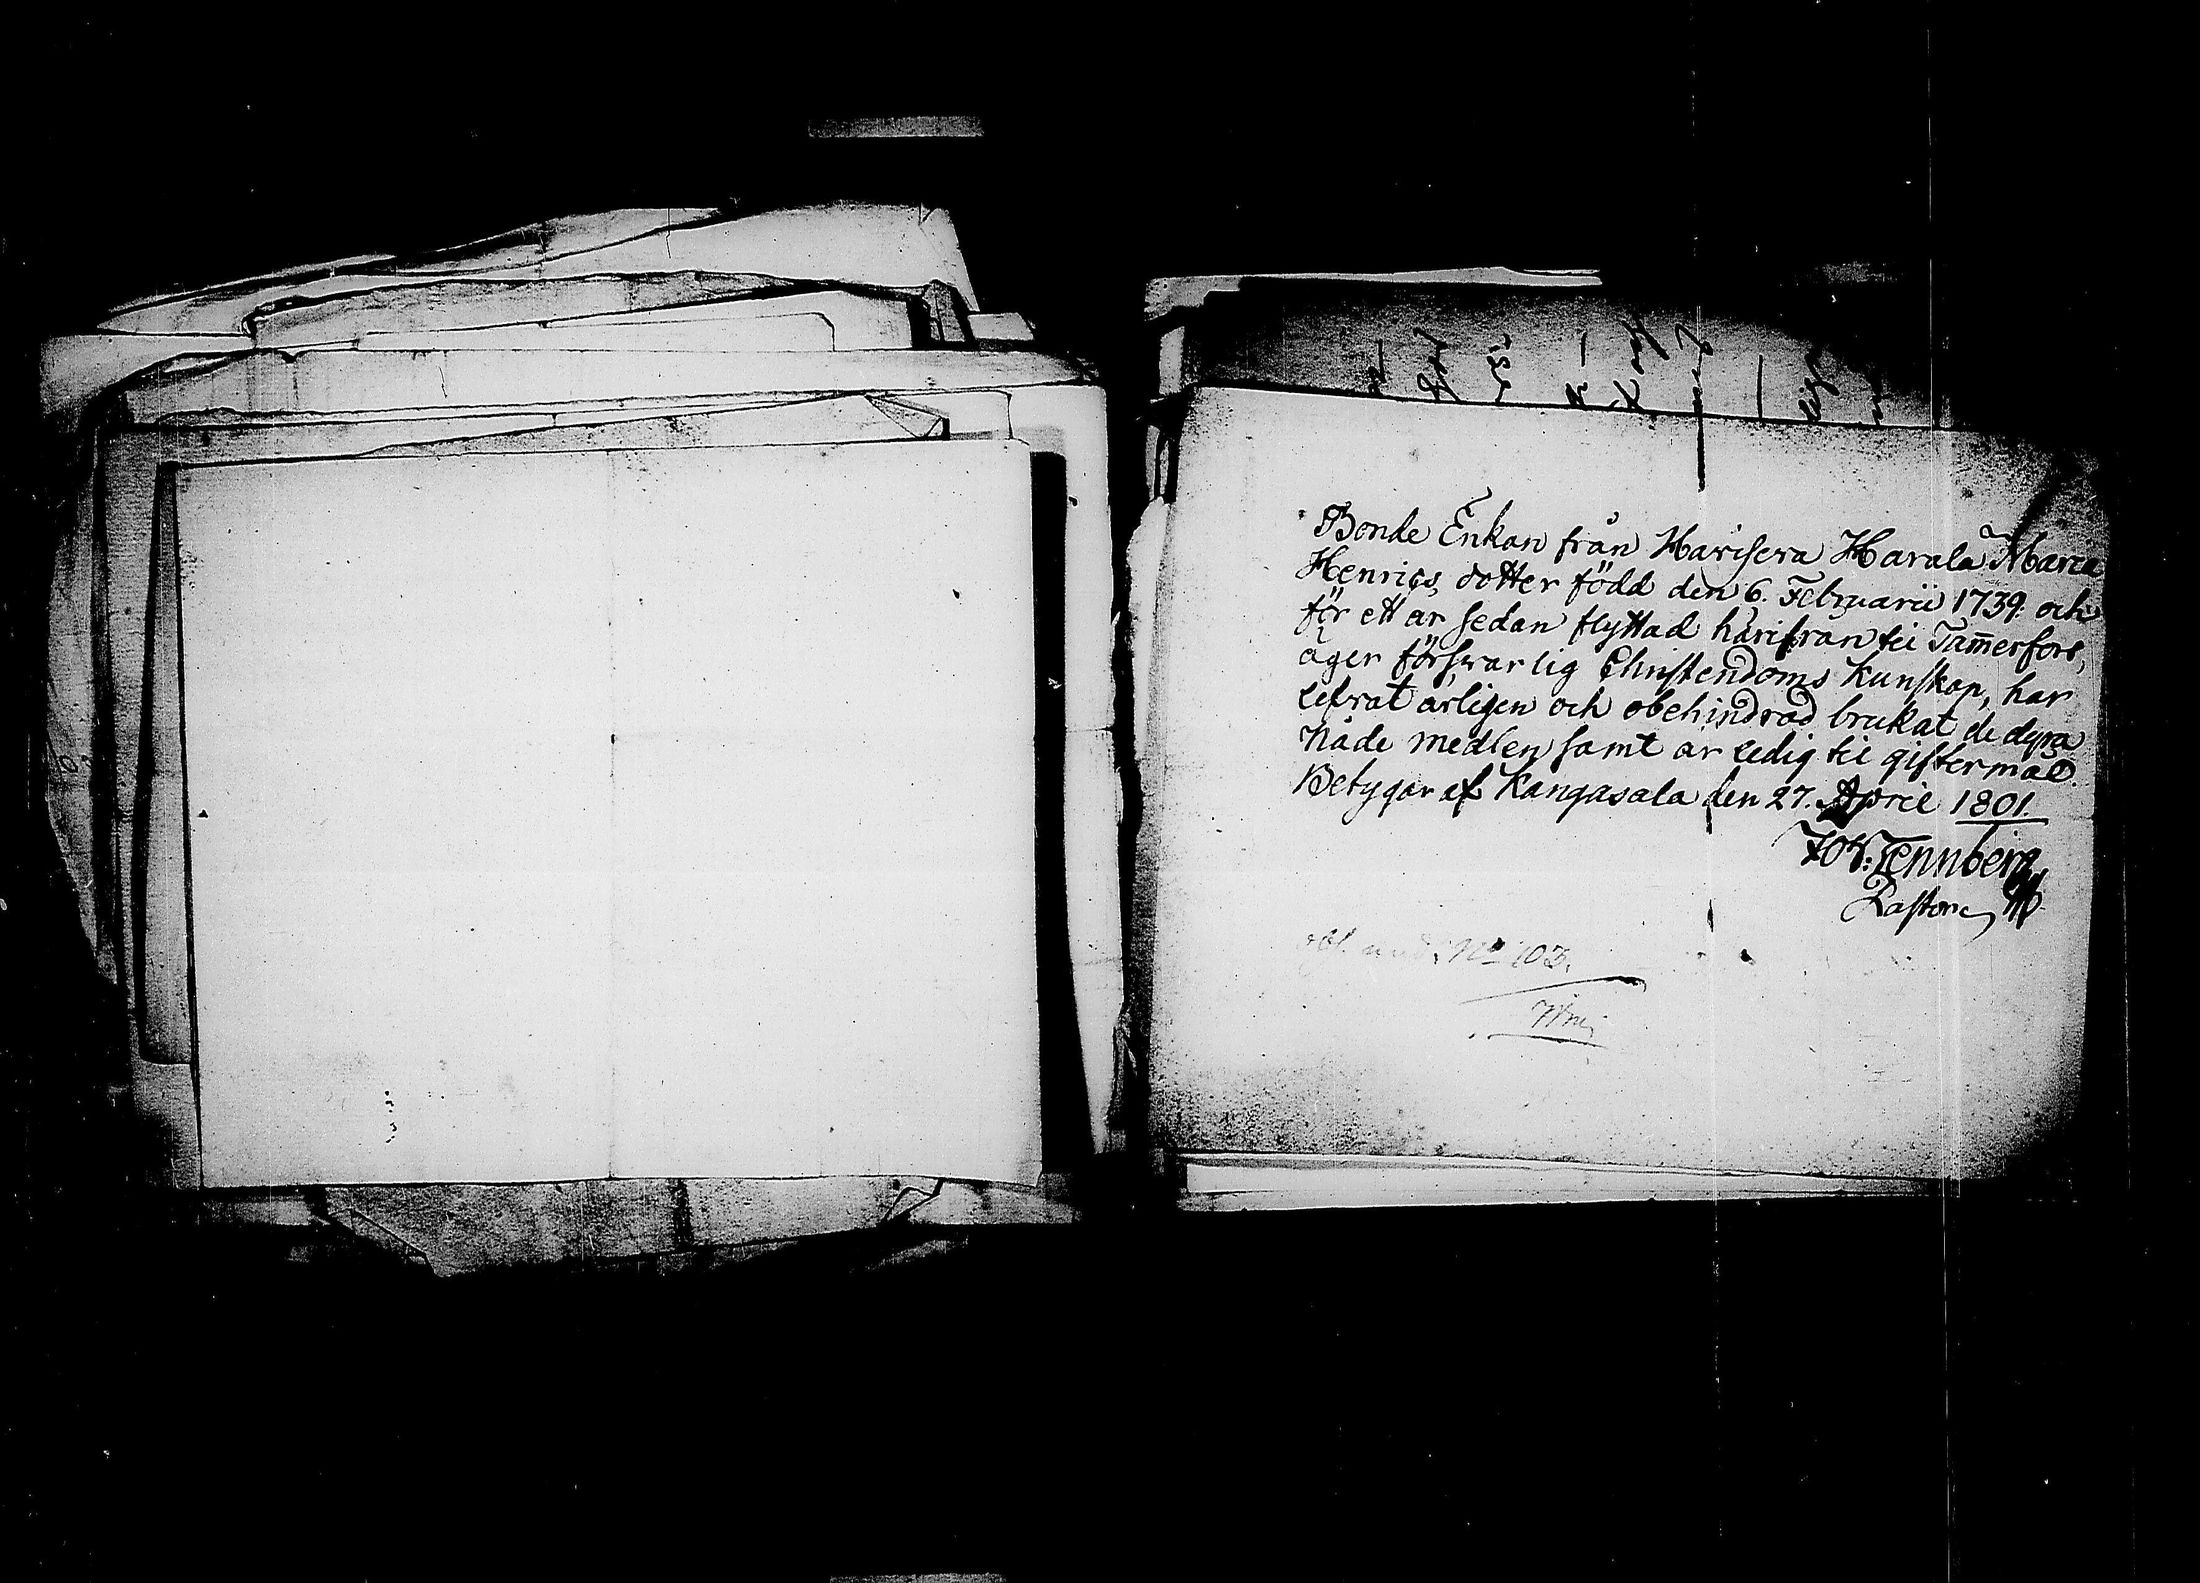 Bonde Enkan från Havisera Harala Maria
Henrics dotter född den 6. Februarii 1739. och
för ett år sedan flyttad härifrån til Tam̄erfors,
äger försvarlig Christendoms Kunskap, har
lefvat ärligen och obehindrad brukat de dyra
Nåde medlen samt är ledig til giftermål.
Betygar af Kangasala den 27. April 1801.
Joh: Tennberg
Pastor
N:o 103.